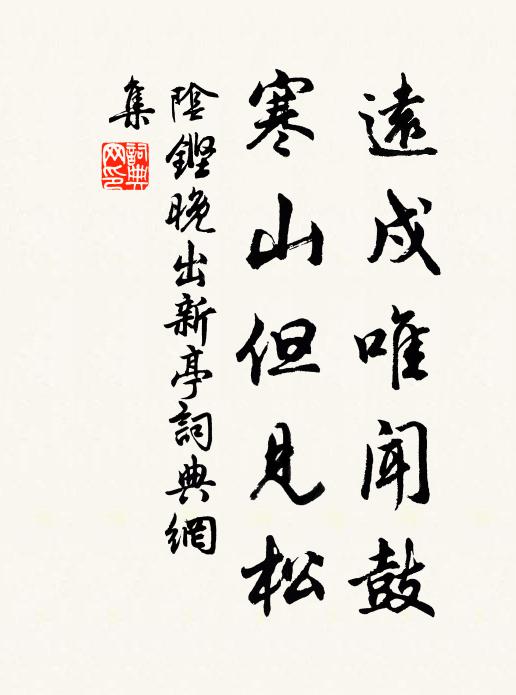 遠戍唯聞鼓
寒山但見松
陰鏗晚出新亭詞典網
集
詞典
网印